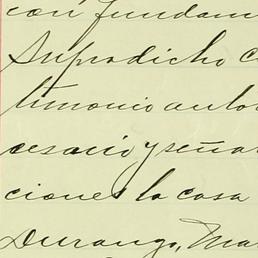 con fundam
Supradicho c
timonio autor
cesario y señor
ciones la casa
Durango, Ma